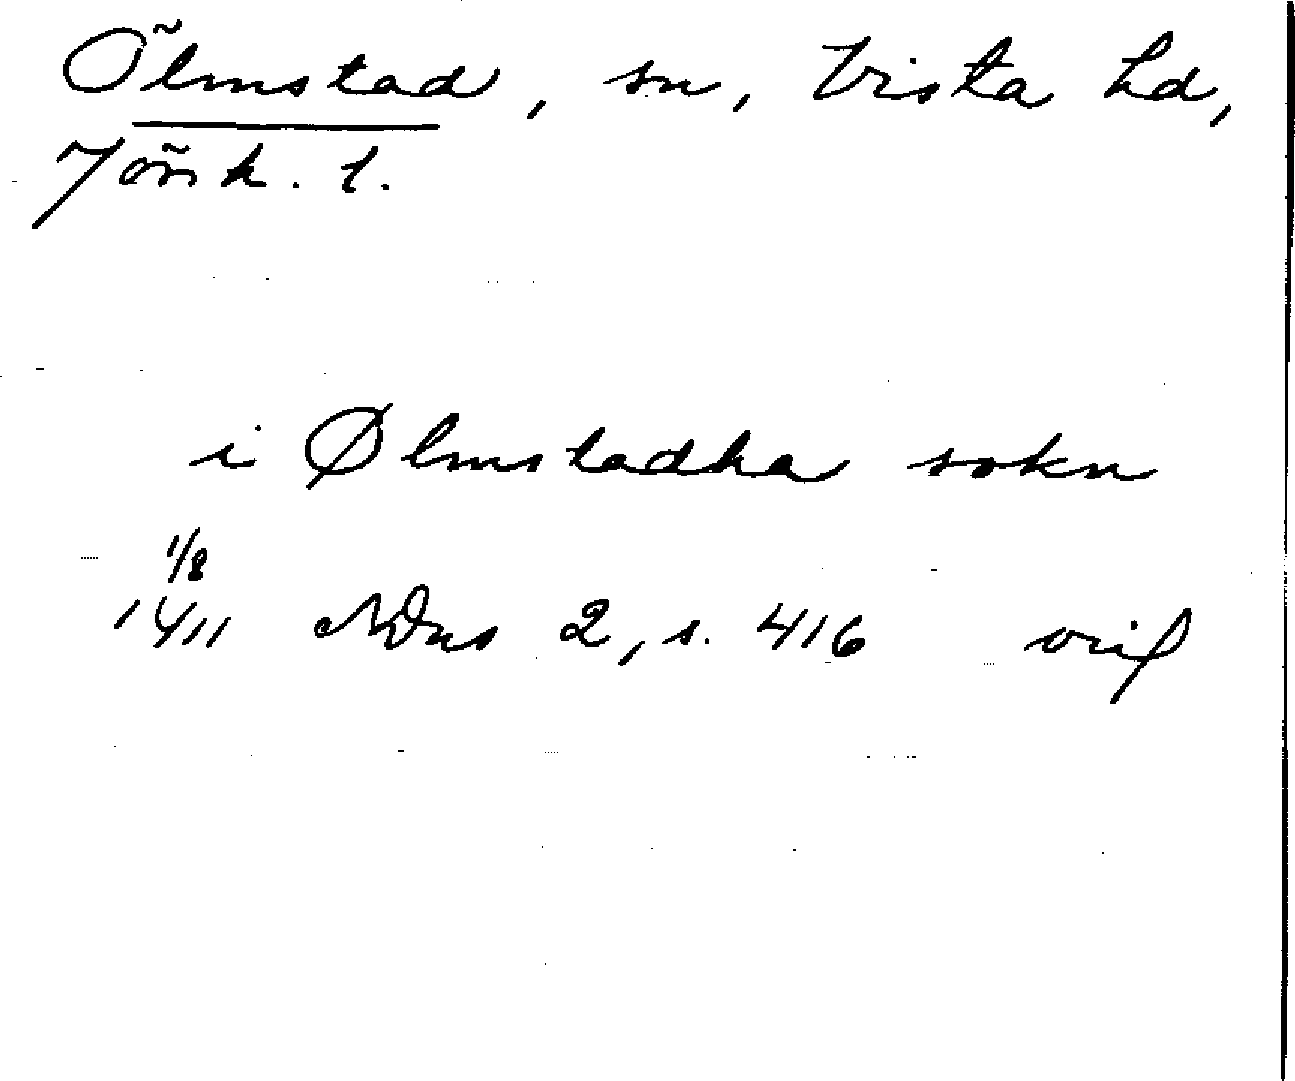 Ölmstad, sn, Vista hd,
Jönk. l.
i Ølmstadha sokn
1/8
1411 SDns 2, s. 416 orig